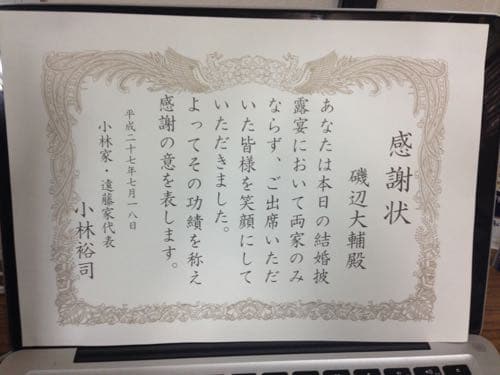 感謝状
磯辺大輔殿
あなたは本日の結婚披
露宴において両家のみ
ならず、ご出席いただ
いた皆様を笑顔にして
いただきました。
よってその功績を称え
感謝の意を表します。
平成二十七年七月一八日
小林家・遠藤家代表
小林裕司